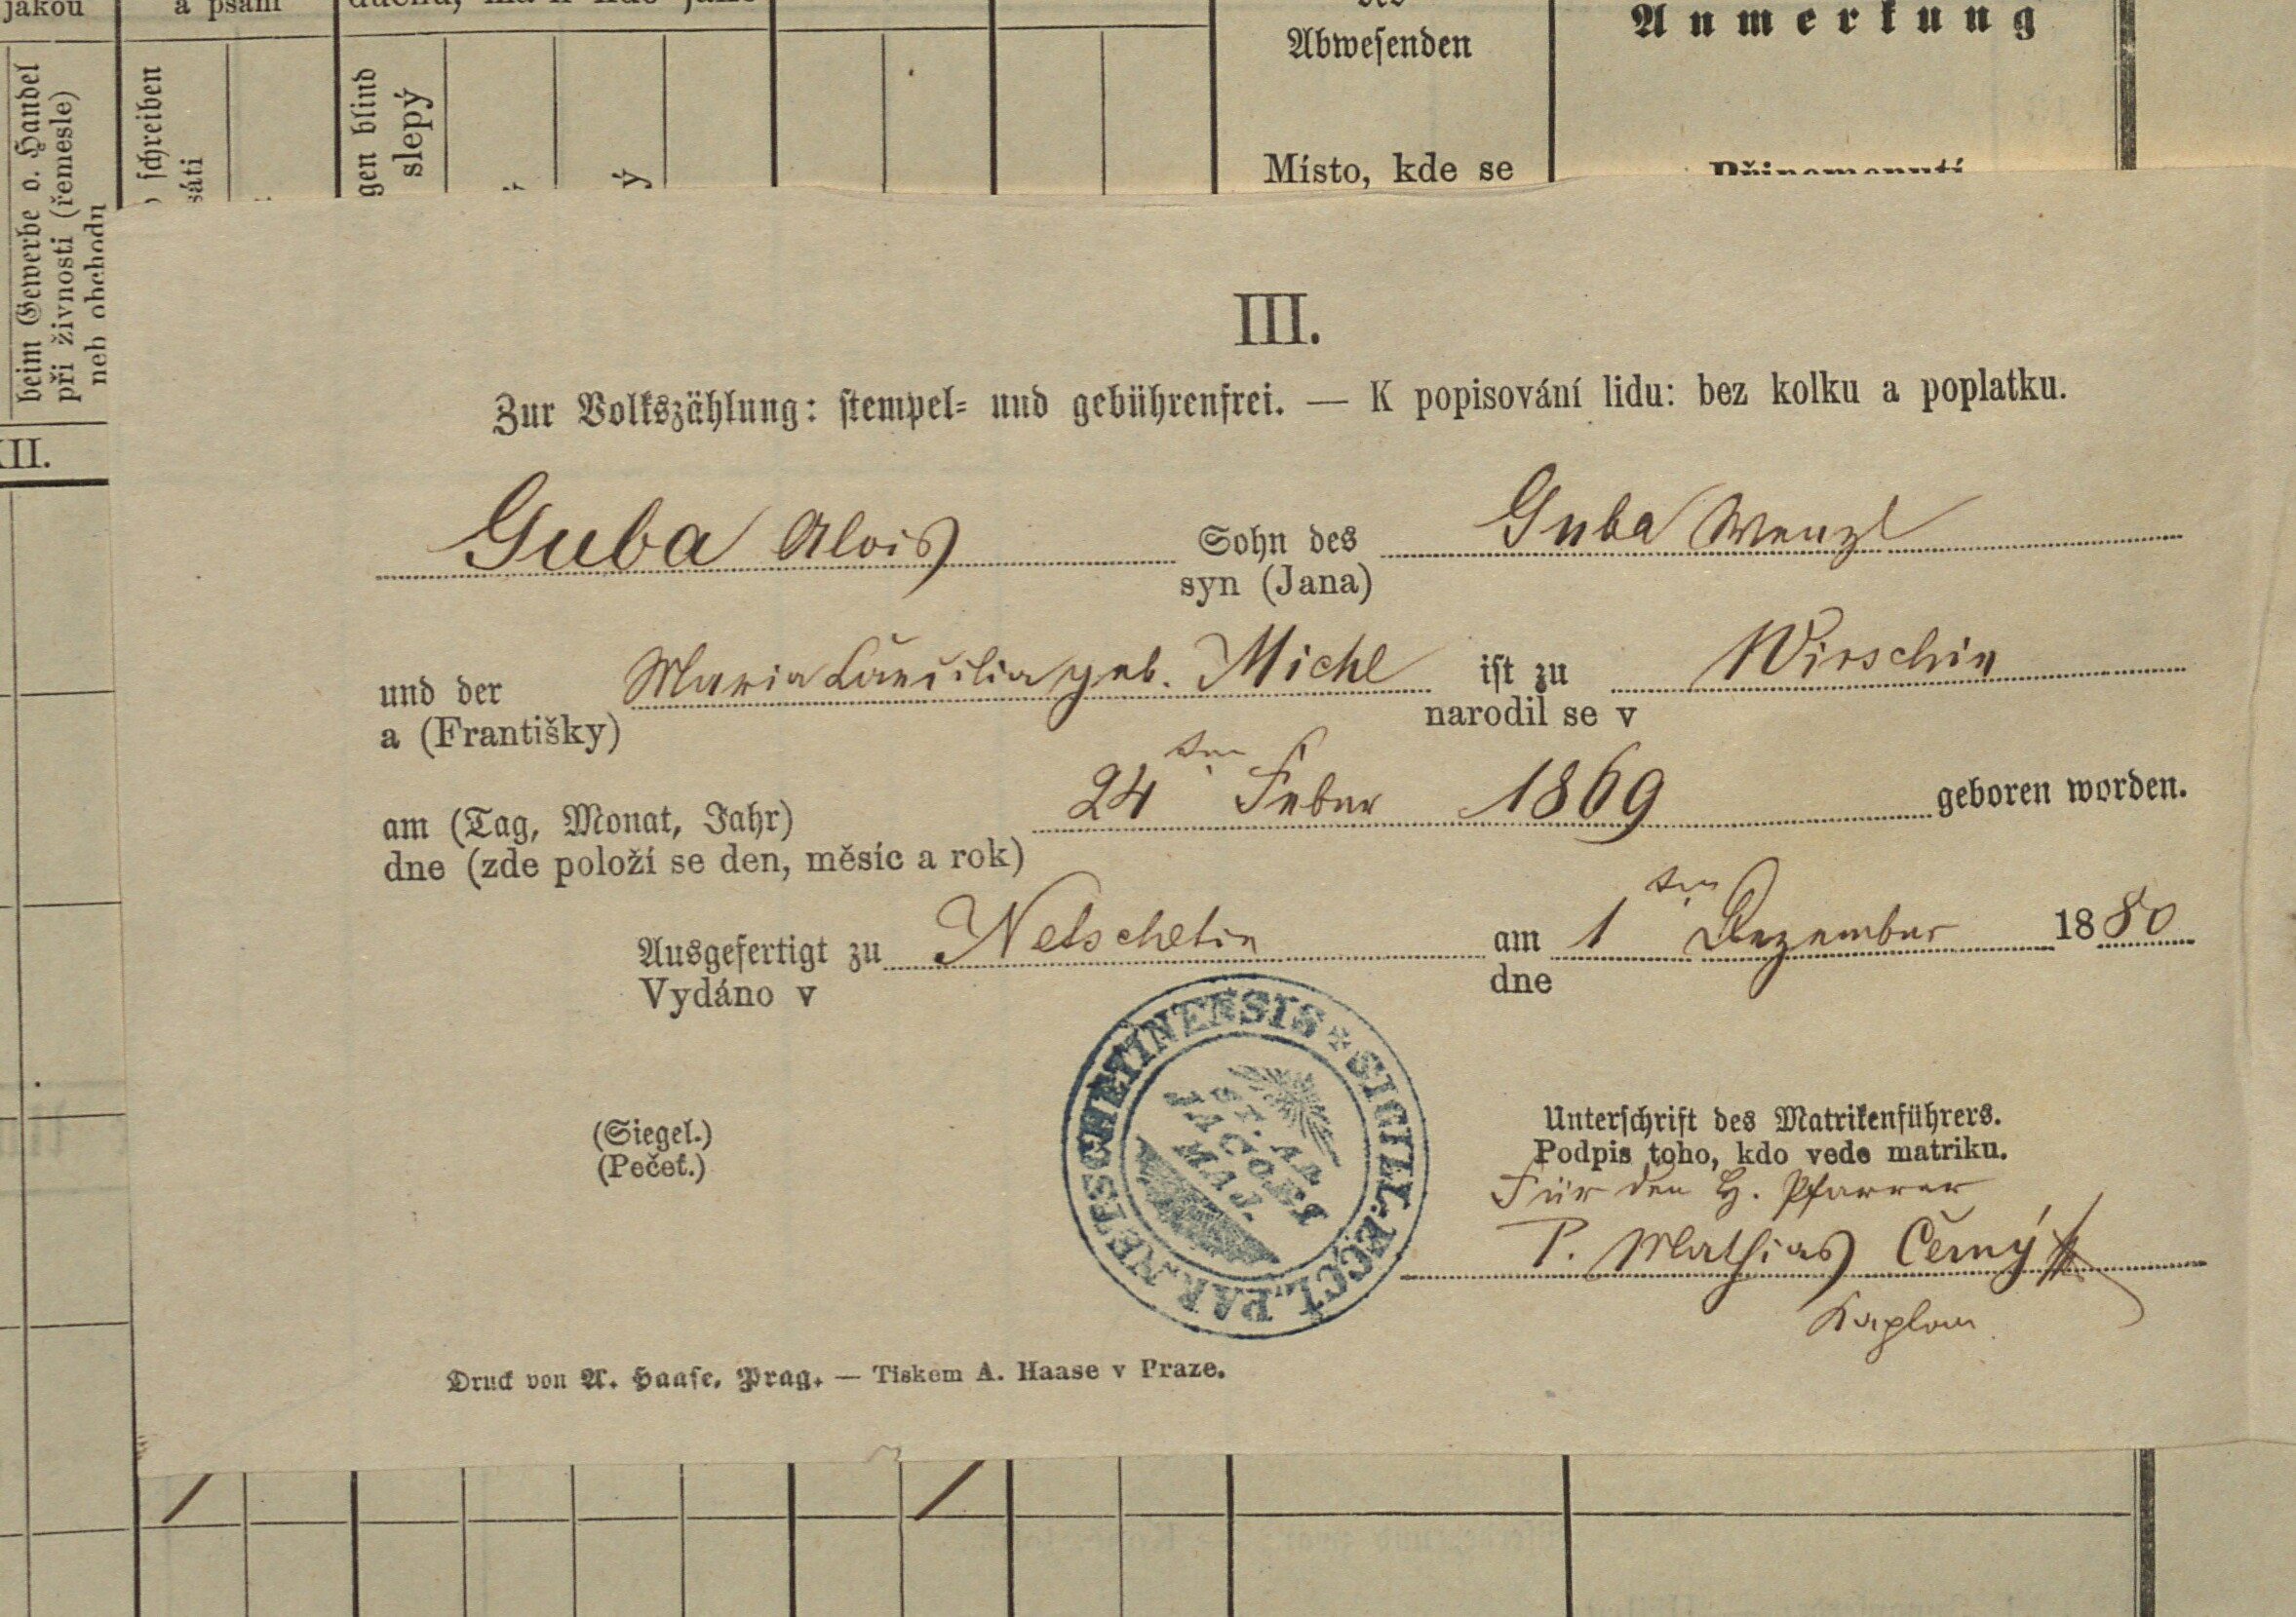 jakou
a psaní
Abwesenden
Anmerkung
beim Gewerbe o. Handel
při živnosti (řemesle)
neb obchodu
schreiben
gen blind
slepý
Místo, kde se
Připomenutí
III.
Zur Volkszählung: stempel- und gebührenfrei. — K popisování lidu: bez kolku a poplatku.
Guba Alois Sohn des Guba Wenzl
syn (Jana)
und der Maria Cäcilia geb. Michl ist zu Wirschin
a (Františky) narodil se v
am (Tag, Monat, Jahr) 24ten Feber 1869 geboren worden.
dne (zde položí se den, měsíc a rok)
Ausgefertigt zu Netschetin am 1ten Dezember 1880
Vydáno v dne
SIGILL. ECCL. PAR. NETSCHETINENSIS
(Siegel.)
(Pečeť.)
Unterschrift des Matrikenführers.
Podpis toho, kdo vede matriku.
Für den H. Pfarrer
P. Mathias Černý
Kaplan
Druck von A. Haase, Prag. — Tiskem A. Haase v Praze.